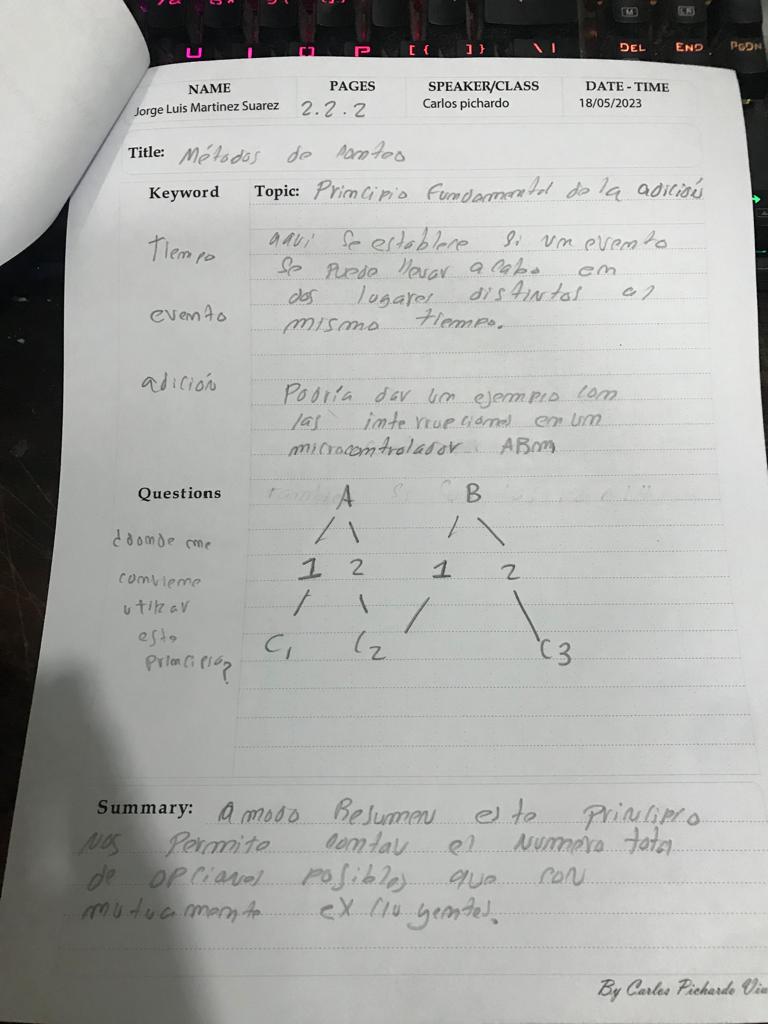 U I [] P [{ ]} \| DEL END PGDN
NAME PAGES SPEAKER/CLASS DATE - TIME
Jorge Luis Martinez Suarez 2.2.2 Carlos pichardo 18/05/2023
Title: Métodos de
Keyword Topic: Principio Fundamental de la adición
Tiempo
evento
adición
aqui se establece si un evento
se puede llevar a cabo en
dos lugares distintos al
mismo tiempo.
Podría dar un ejemplo con
las interrupciones en un
microcontrolador ARM
Questions
¿donde me
conviene
utilizar
este
principio?
A B
1 2 1 2
C1 C2 C3
Summary: a modo Resumen este principio
nos permite contar el numero total
de opciones posibles que son
mutuamente excluyentes.
By Carlos Pichardo